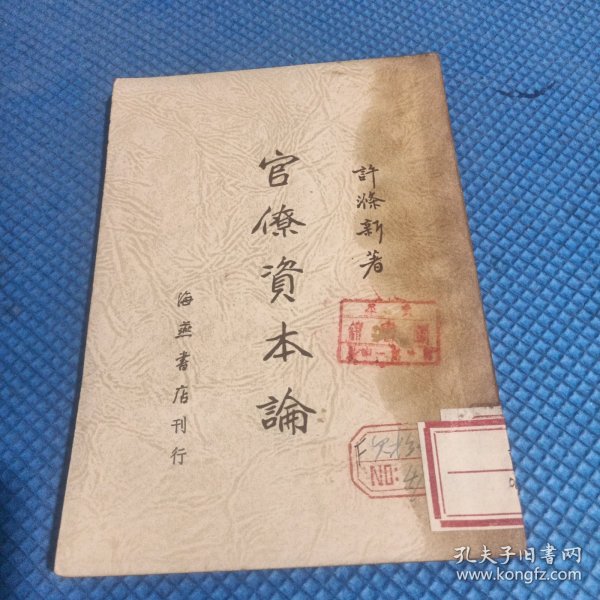 許滌新著
官僚資本論
海燕書店刊行
NO:
孔夫子旧書网
www.kongfz.com